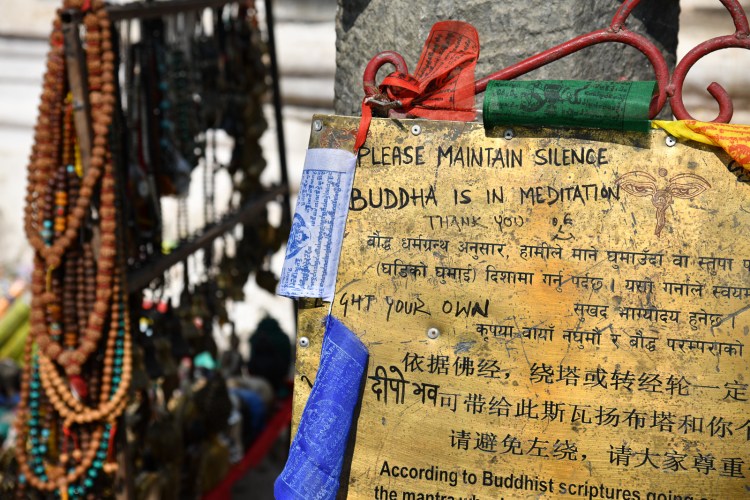 PLEASE MAINTAIN SILENCE
BUDDHA IS IN MEDITATION
THANK YOU
बौद्ध धर्मग्रन्थ अनुसार, हामीले माने घुमाउँदा वा स्तुपा
(घडिको घुमाई) दिशामा गर्नु पर्दछ। यसो गर्नाले
GHT YOUR OWN
सुखद भाग्योदय हुनेछ।
कृपया बायाँ नघुमौं र बौद्ध परम्पराको
依据佛经，绕塔或转经轮一定
दीपो भव
可带给此斯瓦扬布塔和你个
请避免左绕，请大家尊重
According to Buddhist scriptures going
the mantra